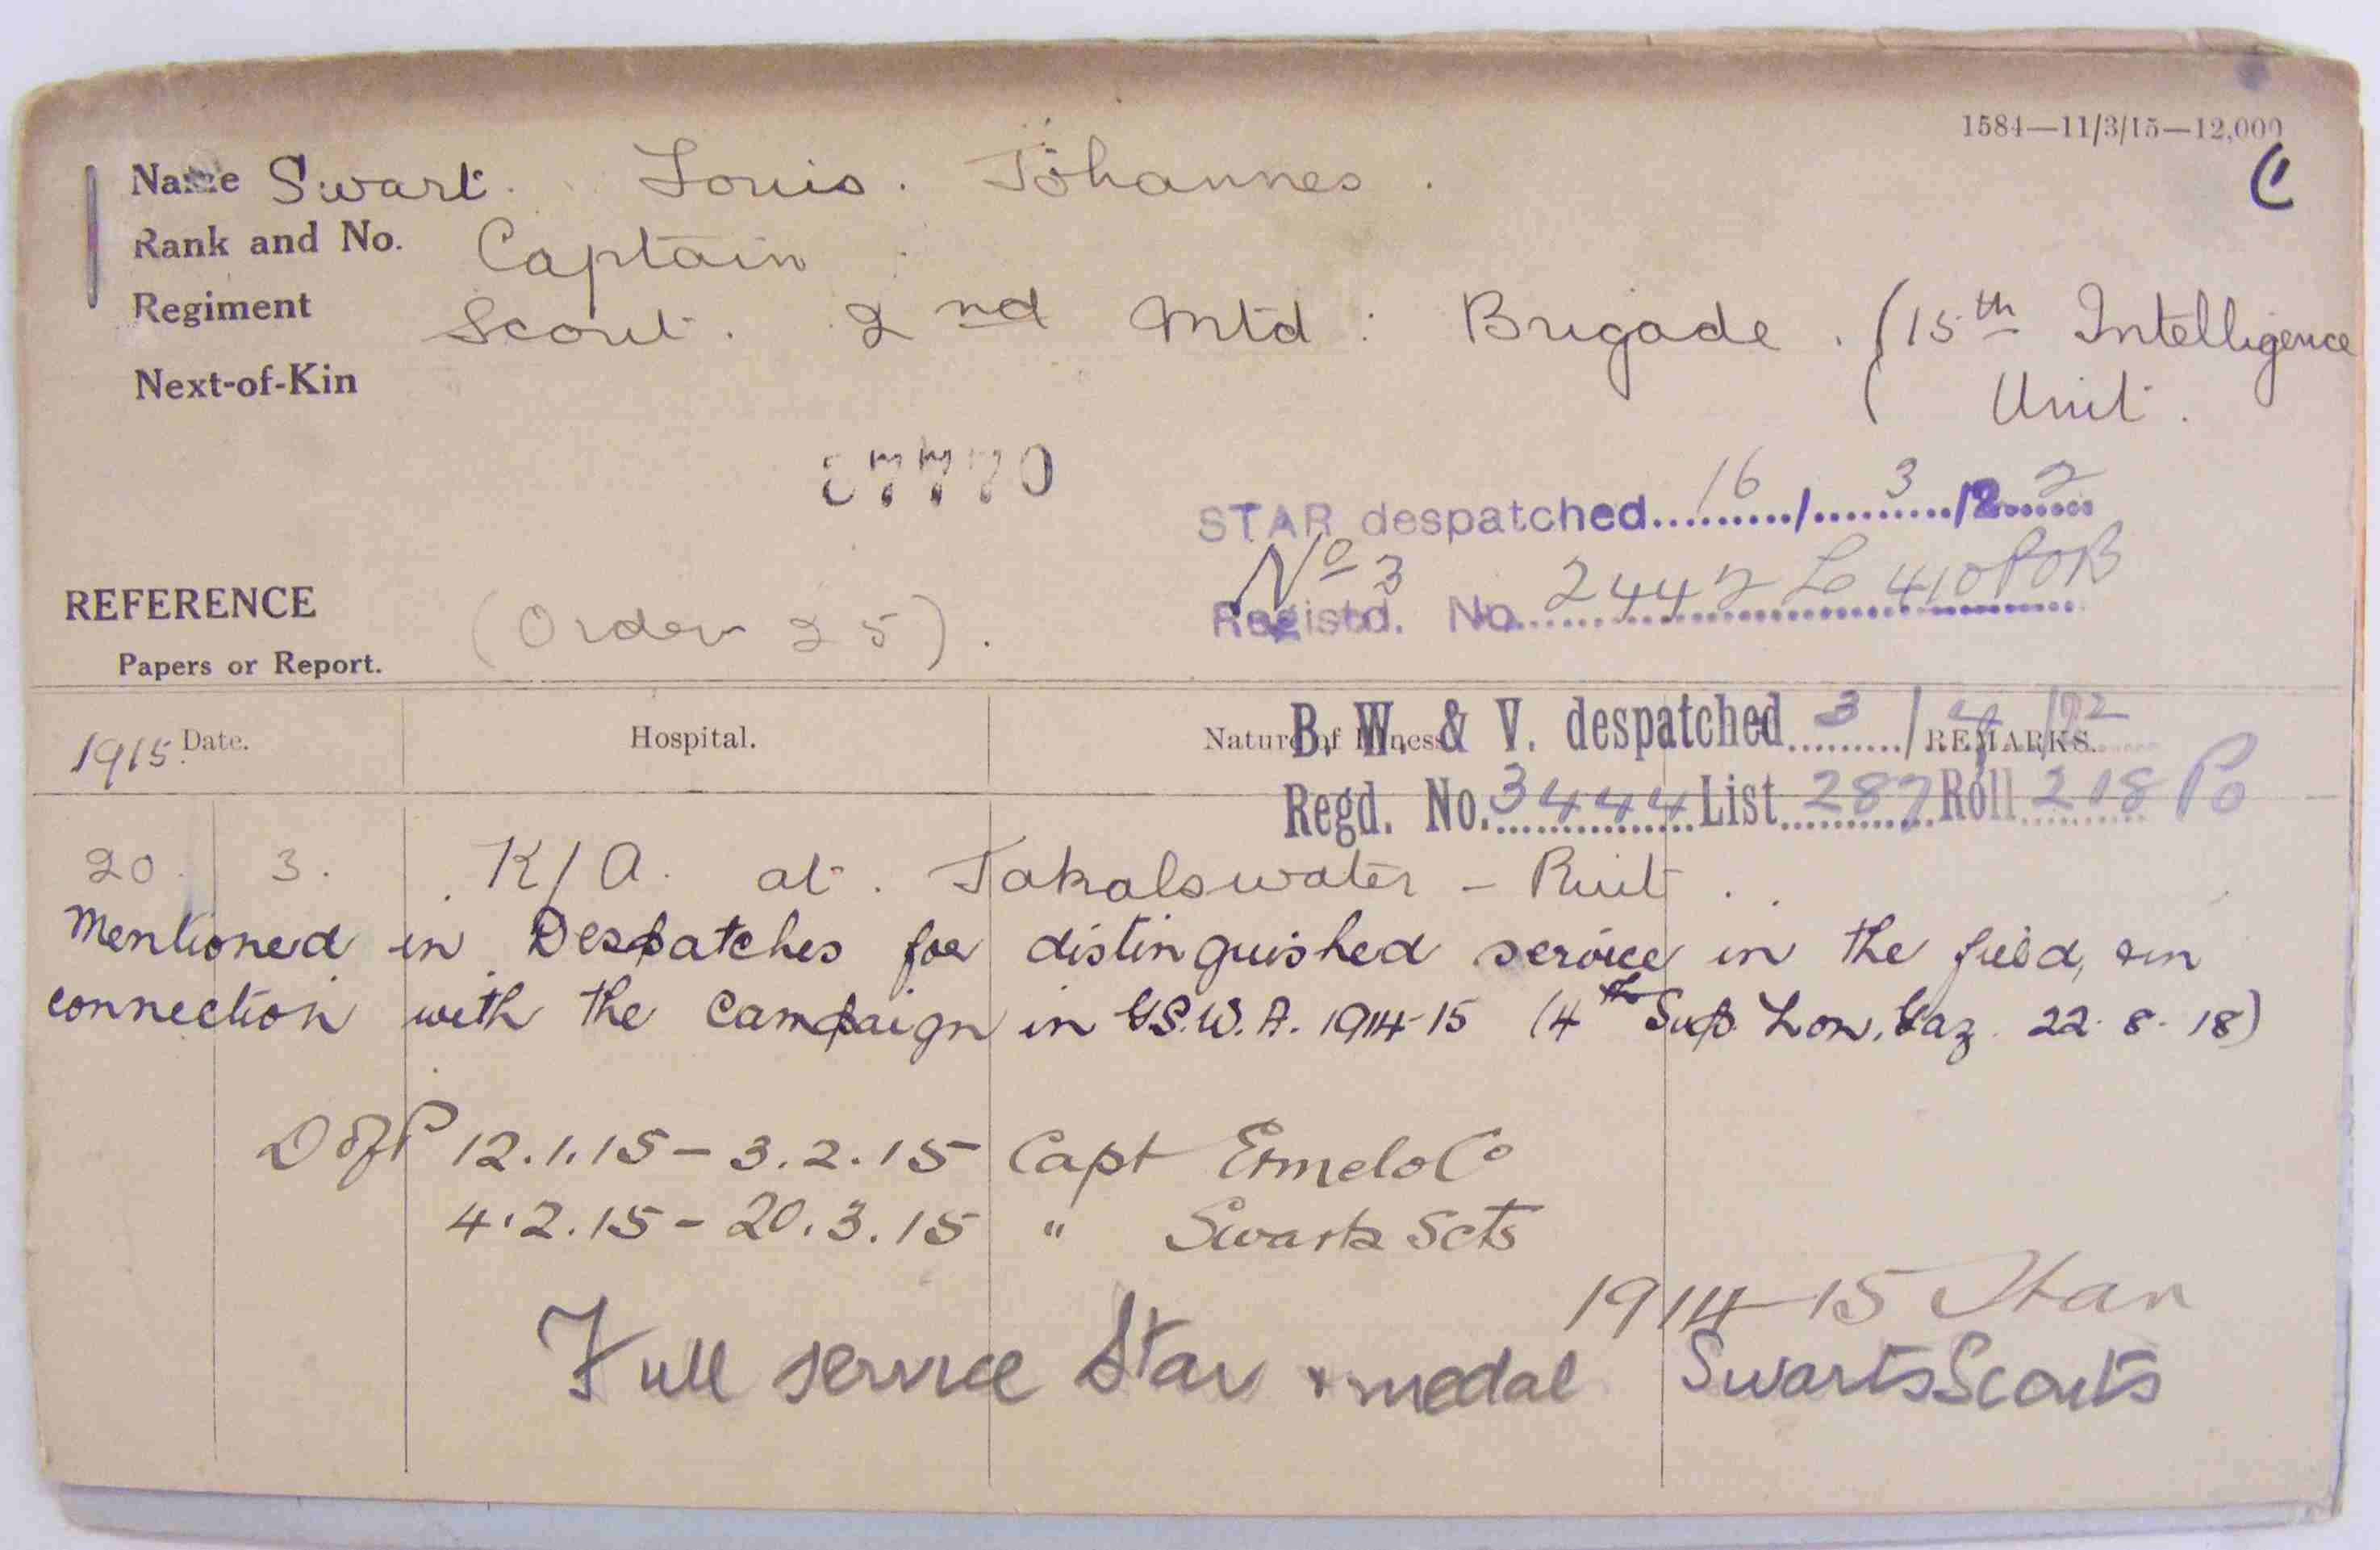 1584—11/3/15—12,000
C
Name Swart. Louis. Johannes.
Rank and No. Captain
Regiment Scout. 2nd Mtd: Brigade. (15th Intelligence
Next-of-Kin ( Unit.
7770
STAR despatched 16/3/22
No 3
Registd. No. 2442 Lo 410 POB
REFERENCE (Order 25).
Papers or Report.
B. W. & V. despatched 3/ /
1915. Date. Hospital. Nature of Illness REMARKS.
Regd. No. 3444 List 287 Roll 218 Po
20. 3. K/A. at. Jakalswater - Ruit.
Mentioned in Despatches for distinguished service in the field, in
connection with the Campaign in G.S.W.A. 1914-15 (4th Sup. Lon. Gaz. 22.8.18)
D of P 12.1.15 - 3.2.15 Capt Ermelo Co
4.2.15 - 20.3.15 " Swarts Scts
1914-15 Star
Full service Star & medal Swarts Scouts